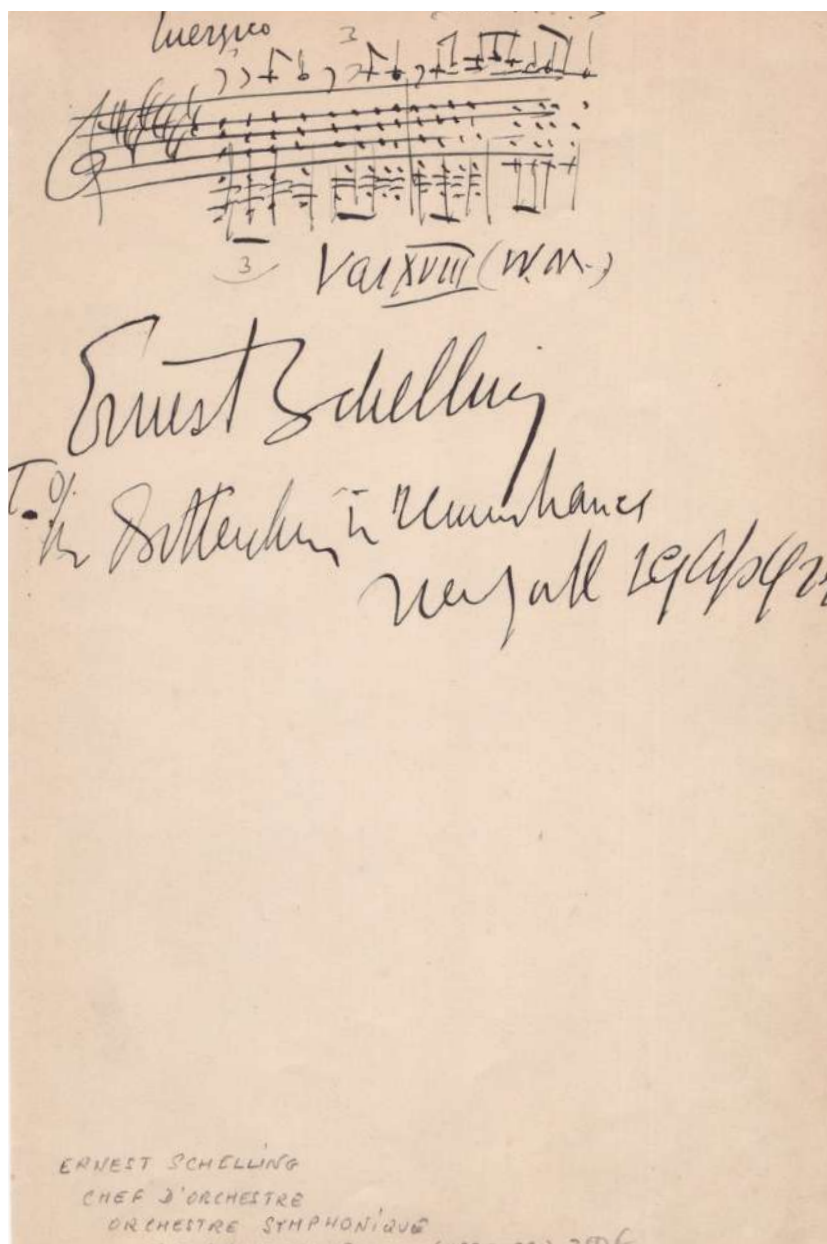 Energico
3
3
Var XVIII (W.M.)
Ernest Schelling
To
in remembrance
New York 19
ERNEST SCHELLING
CHEF D'ORCHESTRE
ORCHESTRE SYMPHONIQUE